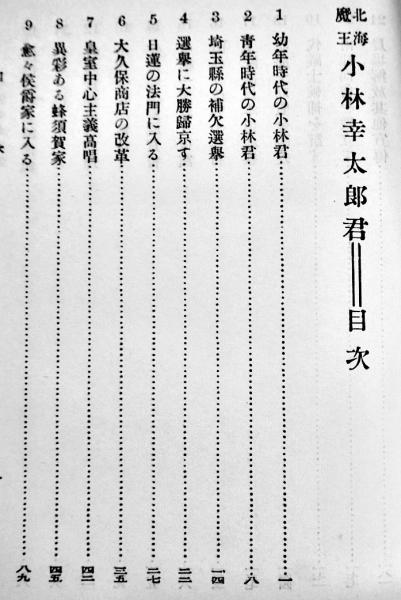 北海魔王 小林幸太郎君══目次
1 幼年時代の小林君…一
2 靑年時代の小林君…八
3 埼玉縣の補欠選擧…一四
4 選擧に大勝歸京す…二二
5 日蓮の法門に入る…二七
6 大久保商店の改革…三五
7 皇室中心主義高唱…四二
8 異彩ある蜂須賀家…四五
9 愈々侯爵家に入る…八九